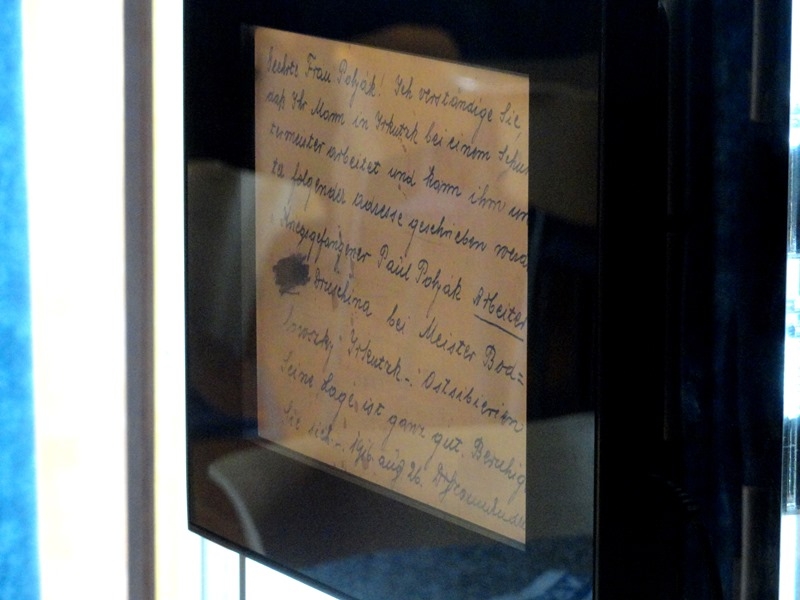 Geehrte Frau Polják! Ich verständige Sie,
daß Ihr Mann in Irkutzk bei einem Schus
termeister arbeitet und kann ihm un
ter folgender Adresse geschrieben werd
Kriegsgefangener Paul Polják Arbeiter
Druschina bei Meister Bod=
lowszky Irkutzk-. Ostsibirien
Seine Lage, ist ganz gut. Beruhig
Sie sich-. 1916 aug 26.